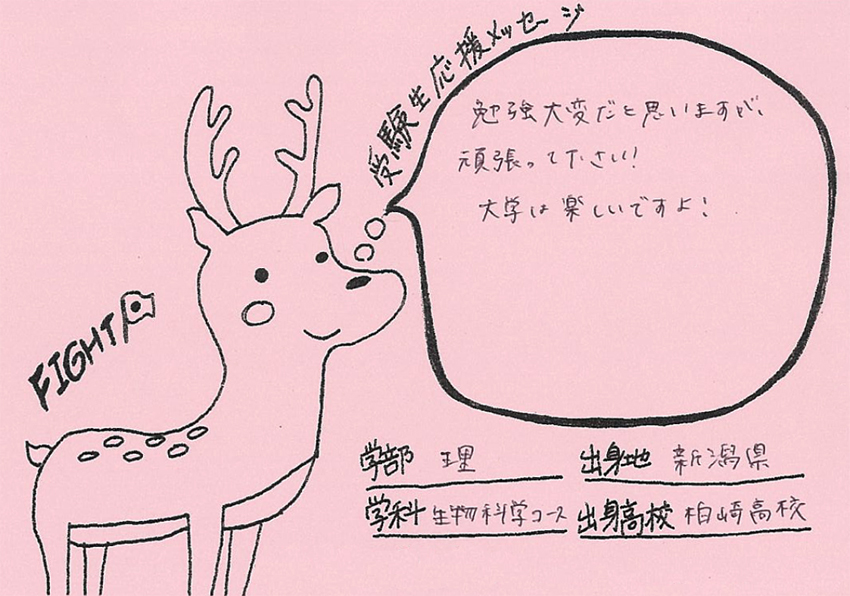 受験生応援メッセージ
勉強大変だと思いますが、
頑張って下さい!
大学は楽しいですよ!
FIGHT
学部 理
出身地 新潟県
学科 生物科学コース
出身高校 柏崎高校